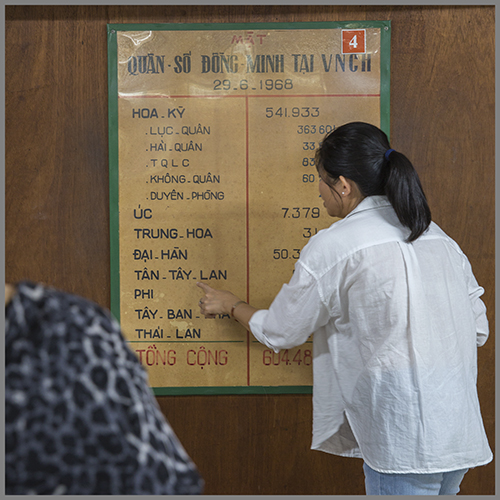 4
MẬT
QUÂN-SỐ ĐỒNG-MINH TẠI VNCH
29-6-1968
HOA-KỲ 541.933
.LỤC-QUÂN
.HẢI-QUÂN
.TQLC
.KHÔNG-QUÂN
.DUYÊN-PHÒNG
ÚC 7.379
TRUNG-HOA
ĐẠI-HÀN
TÂN-TÂY-LAN
PHI
TÂY-BAN-
THÁI-LAN
TỔNG CỘNG